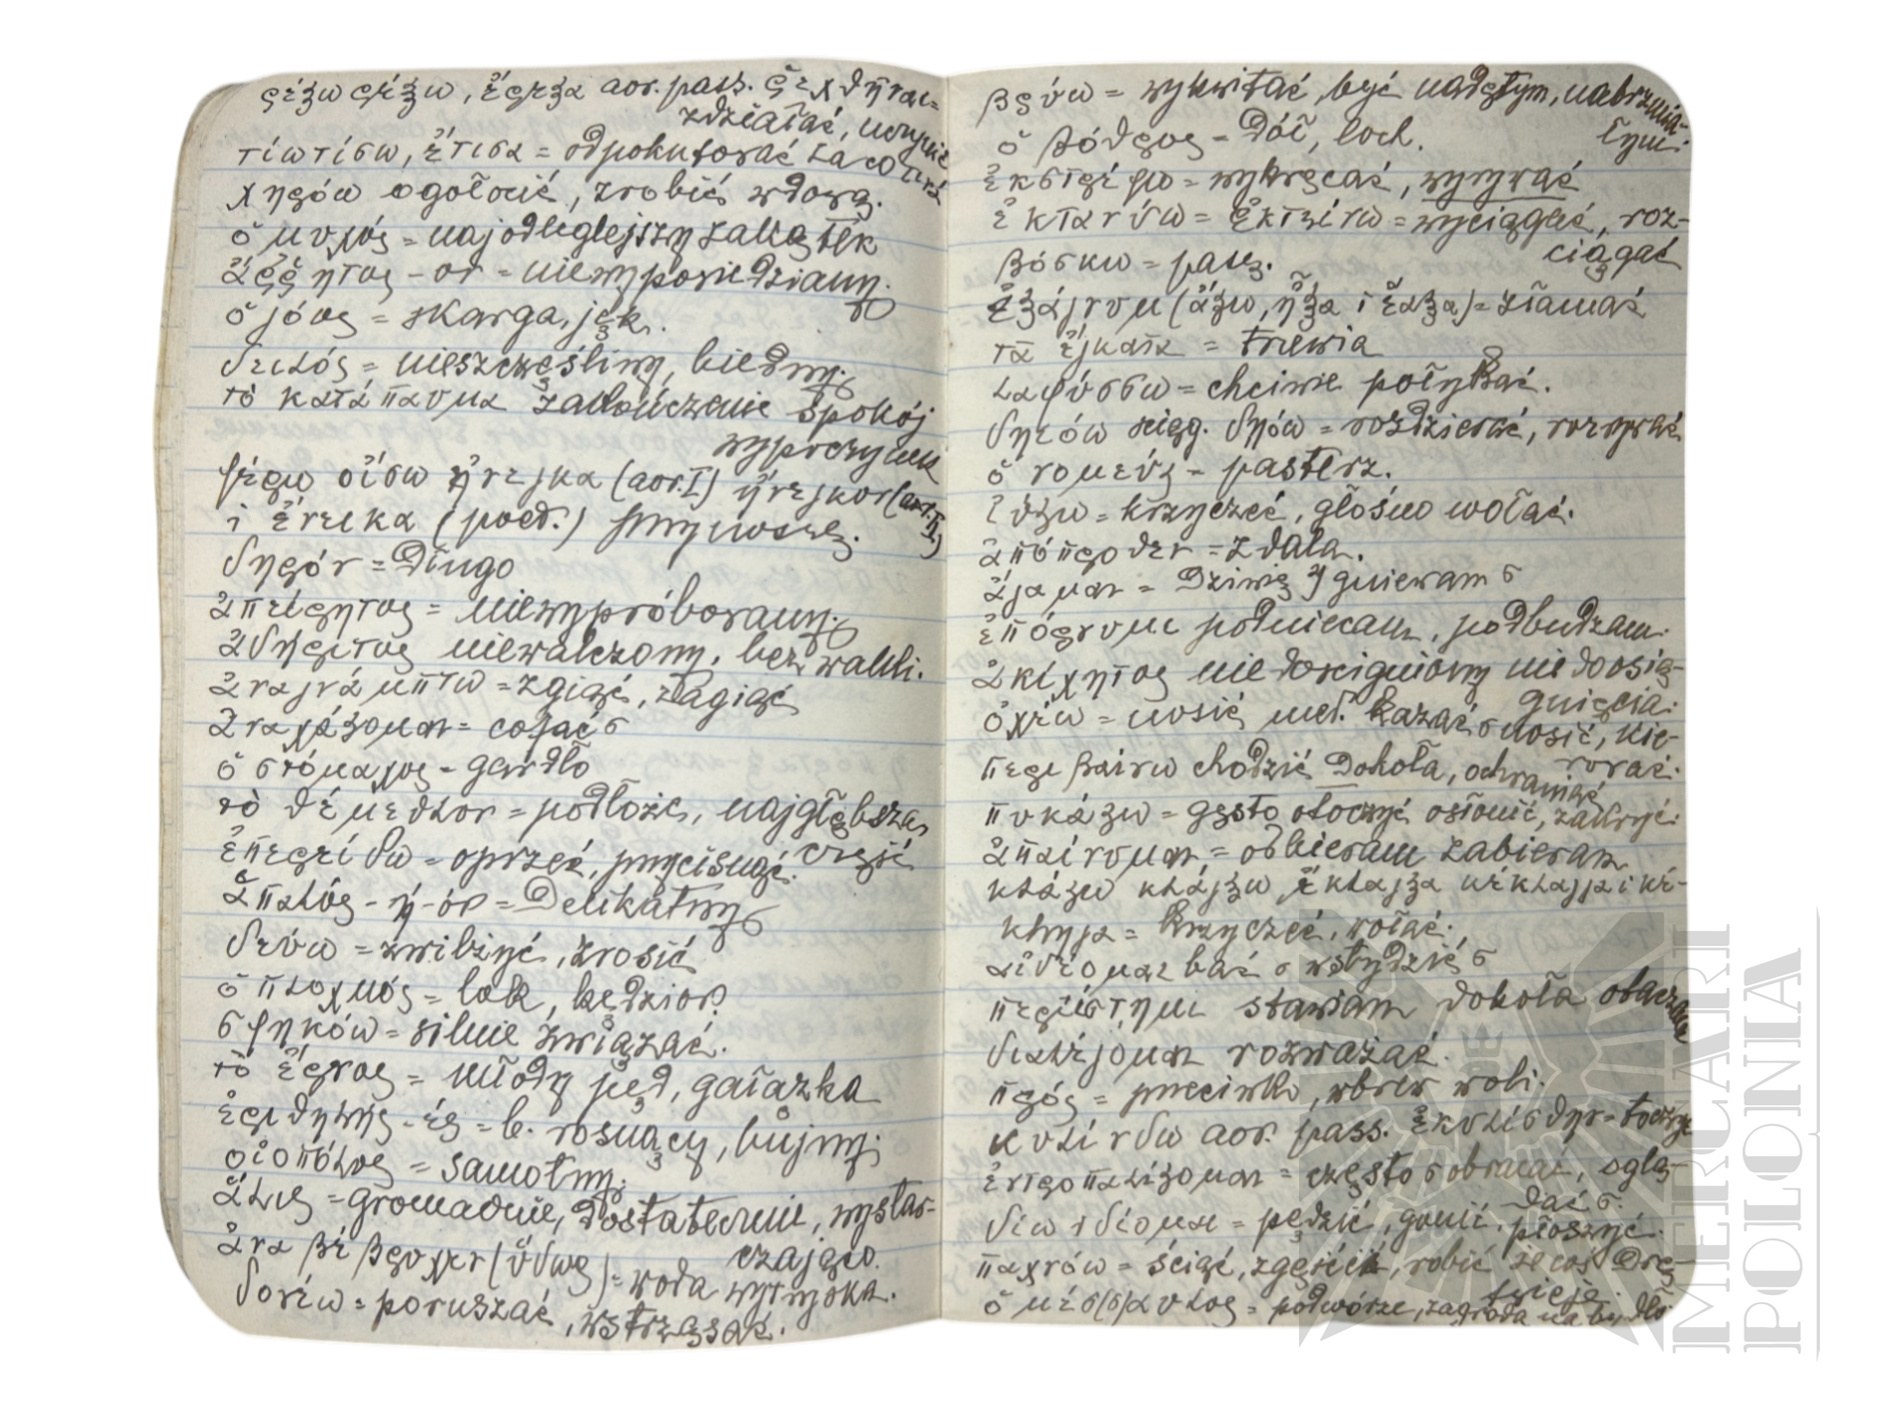 ῥέζω ῥέξω, ἔρεξα aor. pass. ῥεχθῆναι =
zdziałać, uczynić
τίω τίσω, ἔτισα = odpokutować za co
χηρόω ogołocić, zrobić wdową.
ὁ μυχός = najodleglejszy zakątek
ἄῤῥητος - ον = niewypowiedziany.
ὁ γόος = skarga, jęk.
δειλός = nieszczęśliwy, biedny.
τὸ κατάπαυμα zakończenie spokój
wypoczynek
φέρω οἴσω ἤνεγκα (aor. I) ἤνεγκον (aor. II)
i ἔνεικα (poet.) przynoszę.
δηρόν = Długo
ἀπείρητος = niewypróbowany.
ἀδήριτος niewalczony, bez walki.
ἀναγνάμπτω = zgiąć, zagiąć
ἀναχάζομαι = cofać σ
ὁ στόμαχος = gardło
τὸ θέμεθλον = podłoże, najgłębsza
część
ἐπερείδω = oprzeć, przycisnąć.
ἁπαλός - ή - όν = Delikatny
δεύω = zwilżyć, zrosić
ὁ πλοχμός = lok, kędzior.
σφηκόω = silnie związać.
τὸ ἔρνος = młody pęd, gałązka
ἐριθηλής - ές = b. rosnący, bujny.
οἰοπόλος = samotny.
ἅλις = gromadnie, Dostatecznie, wystar-
czająco.
ἀναβέβροχεν (ὕδωρ) = woda wytryska.
δονέω = poruszać, wstrząsać.
βρύω = wykwitać, być nadętym, nabrzmia-
łym.
ὁ βόθρος = Dół, loch.
ἐκστρέφω = wykręcać, wyrywać
ἐκτανύω = ἐκτείνω = wyciągać, roz-
ciągać
βόσκω = pasę.
ἐξάγνυμι (ἄξω, ἦξα i ἔαξα) = złamać
τὰ ἔγκατα = trzewia
λαφύσσω = chciwie połykać.
δηιόω ściąg. δῃόω = rozdzierać, rozrywać
ὁ νομεύς = pasterz.
ἰύζω = krzyczeć, głośno wołać.
ἀπόπροθεν = z dala.
ἄγαμαι = Dziwię 2) gniewam σ
ἐπόρνυμι podniecam, podbudzam.
ἀκίχητος niedościgniony nie do osią-
gnięcia.
ὀχέω = nosić med. kazać σ nosić, kie-
rować.
περιβαίνω chodzić Dokoła, ochraniać
πυκάζω = gęsto otoczyć osłonić, zakryć.
ἀπαίνυμαι = odbieram zabieram
κλάζω κλάγξω ἔκλαγξα κέκλαγγα i κέ-
κληγα = krzyczeć, wołać.
αἰδέομαι bać σ wstydzić σ
περιίστημι stawiam dokoła otaczam
διαλέγομαι rozważać.
πρός = przeciwko, wbrew woli.
κυλίνδω aor. pass. ἐκυλίσθην = toczyć
ἐντροπαλίζομαι = często σ obracać, oglą-
dać σ.
δίω i δίομαι = pędzić, gonić. płoszyć.
παχνόω = ściąć, zgęścić, robić że coś Dręt-
wieje.
ὁ μέσ(σ)αυλος = podwórze, zagroda na bydło
MERCARI
POLONIA